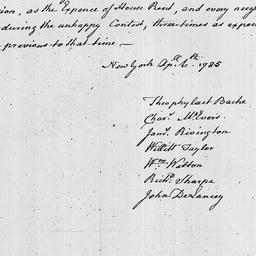 ion, as the Expence of House Rent, and every neces
during the unhappy Contest, three times as expen
previous to that time —
New York Apl. 6th 1785
Theophylact Bache
Chars. McEvers
Jams. Rivington
Willett Taylor
Wm. Walton
Richd. Sharpe
John DeLancey